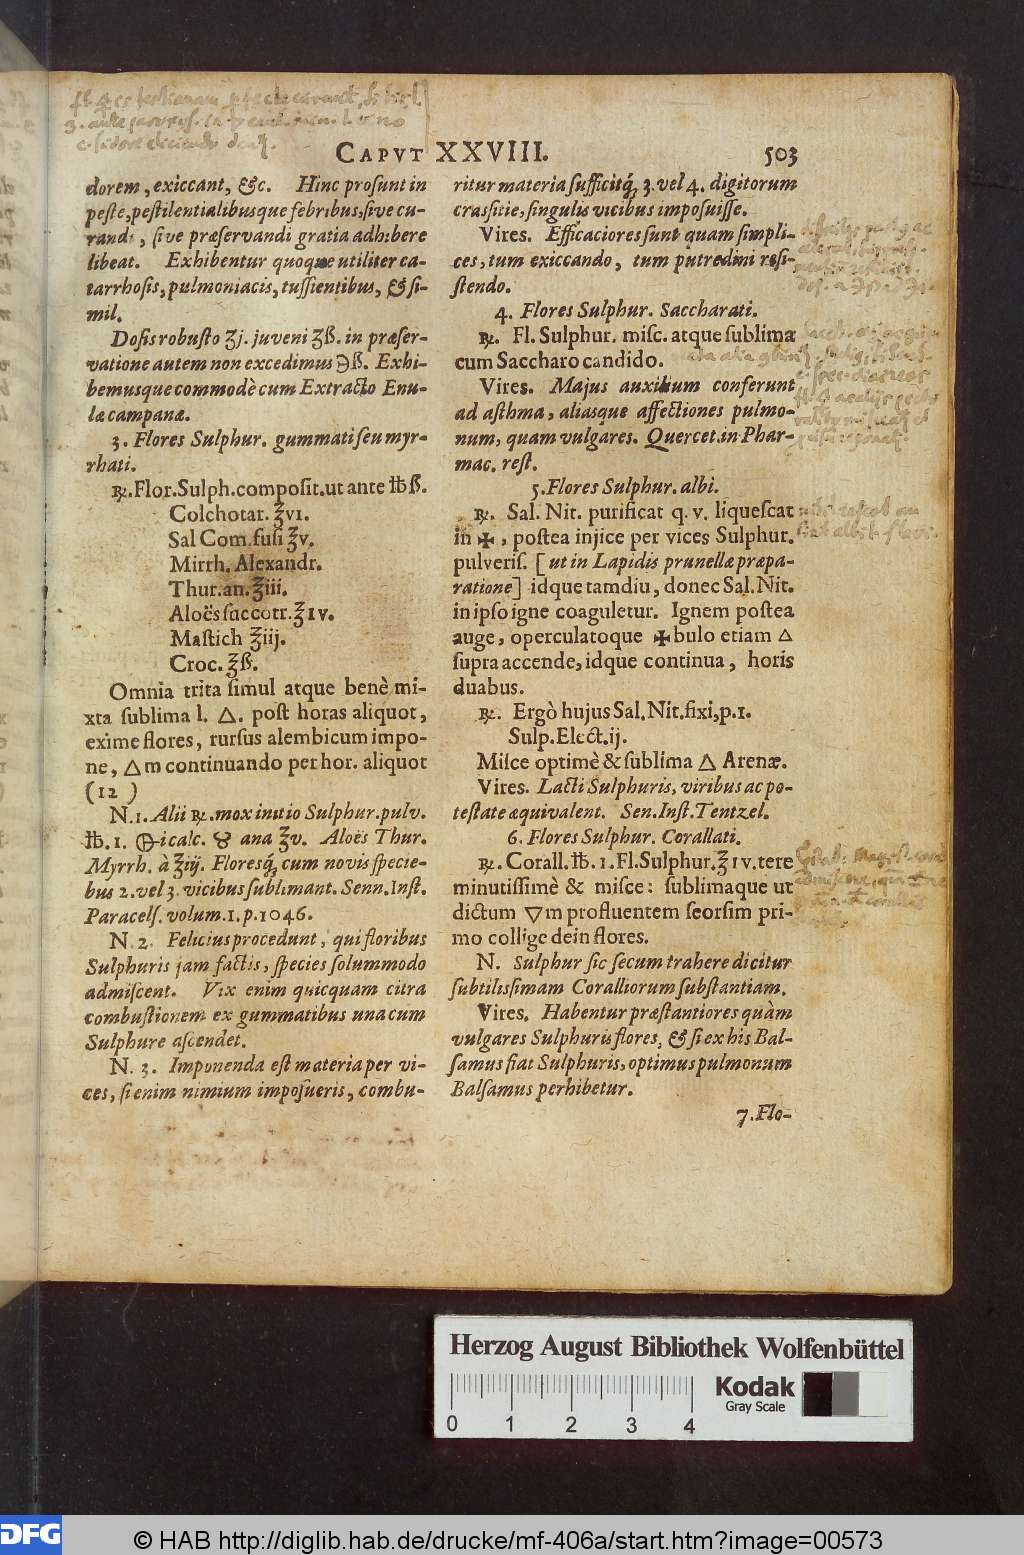 CAPVT XXVIII. 503
dorem, exiccant, &c. Hinc prosunt in
peste, pestilentialibusque febribus, sive cu-
randi, sive præservandi gratia adhibere
libeat. Exhibentur quoque utiliter ca-
tarrhosis, pulmoniacis, tussientibus, & si-
mil.
Dosis robusto ʒj. juveni ʒß. in præser-
vatione autem non excedimus ℈ß. Exhi-
bemusque commodè cum Extracto Enu-
læ campanæ.
3. Flores Sulphur. gummati seu myr-
rhati.
℞. Flor. Sulph. composit. ut ante ℔ß.
Colchotar. ℥vı.
Sal Com. fusi ℥v.
Mirrh. Alexandr.
Thur. an. ℥iii.
Aloës succotr. ℥ıv.
Mastich ℥iij.
Croc. ℥ß.
Omnia trita simul atque benè mi-
xta sublima l. 🜂. post horas aliquot,
exime flores, rursus alembicum impo-
ne, 🜂m continuando per hor. aliquot
(12 )
N. 1. Alii ℞. mox initio Sulphur. pulv.
℔. 1. 🜖i calc. ♉ ana ℥v. Aloës Thur.
Myrrh. à ℥iij. Floresq́; cum novis specie-
bus 2. vel 3. vicibus sublimant. Senn. Inst.
Paracels. volum. 1. p. 1046.
N. 2. Felicius procedunt, qui floribus
Sulphuris jam factis, species solummodo
admiscent. Vix enim quicquam citra
combustionem ex gummatibus una cum
Sulphure ascendet.
N. 3. Imponenda est materia per vi-
ces, si enim nimium imposueris, combu-
ritur materia sufficitq́; 3. vel 4. digitorum
crassitie, singulis vicibus imposuisse.
Vires. Efficaciores sunt quam simpli-
ces, tum exiccando, tum putredini resi-
stendo.
4. Flores Sulphur. Saccharati.
℞. Fl. Sulphur. misc. atque sublima
cum Saccharo candido.
Vires. Majus auxilium conferunt
ad asthma, aliasque affectiones pulmo-
num, quam vulgares. Quercet. in Phar-
mac. rest.
5. Flores Sulphur. albi.
℞. Sal. Nit. purificat q. v. liquescat
in ✠, postea injice per vices Sulphur.
pulveris. [ut in Lapidis prunellæ præpa-
ratione] idque tamdiu, donec Sal. Nit.
in ipso igne coaguletur. Ignem postea
auge, operculatoque ✠bulo etiam 🜂
supra accende, idque continua, horis
duabus.
℞. Ergò hujus Sal. Nit. fixi, p. 1.
Sulp. Elect. ij.
Misce optimè & sublima 🜂 Arenæ.
Vires. Lacti Sulphuris, viribus ac po-
testate æquivalent. Sen. Inst. Tentzel.
6. Flores Sulphur. Corallati.
℞. Corall. ℔. 1. Fl. Sulphur. ℥ıv. tere
minutissimè & misce: sublimaque ut
dictum 🜄m profluentem seorsim pri-
mo collige dein flores.
N. Sulphur sic secum trahere dicitur
subtilissimam Coralliorum substantiam.
Vires. Habentur præstantiores quàm
vulgares Sulphuris flores, & si ex his Bal-
samus fiat Sulphuris, optimus pulmonum
Balsamus perhibetur.
7. Flo-
Herzog August Bibliothek Wolfenbüttel
Kodak
Gray Scale
0 1 2 3 4
DFG
© HAB http://diglib.hab.de/drucke/mf-406a/start.htm?image=00573